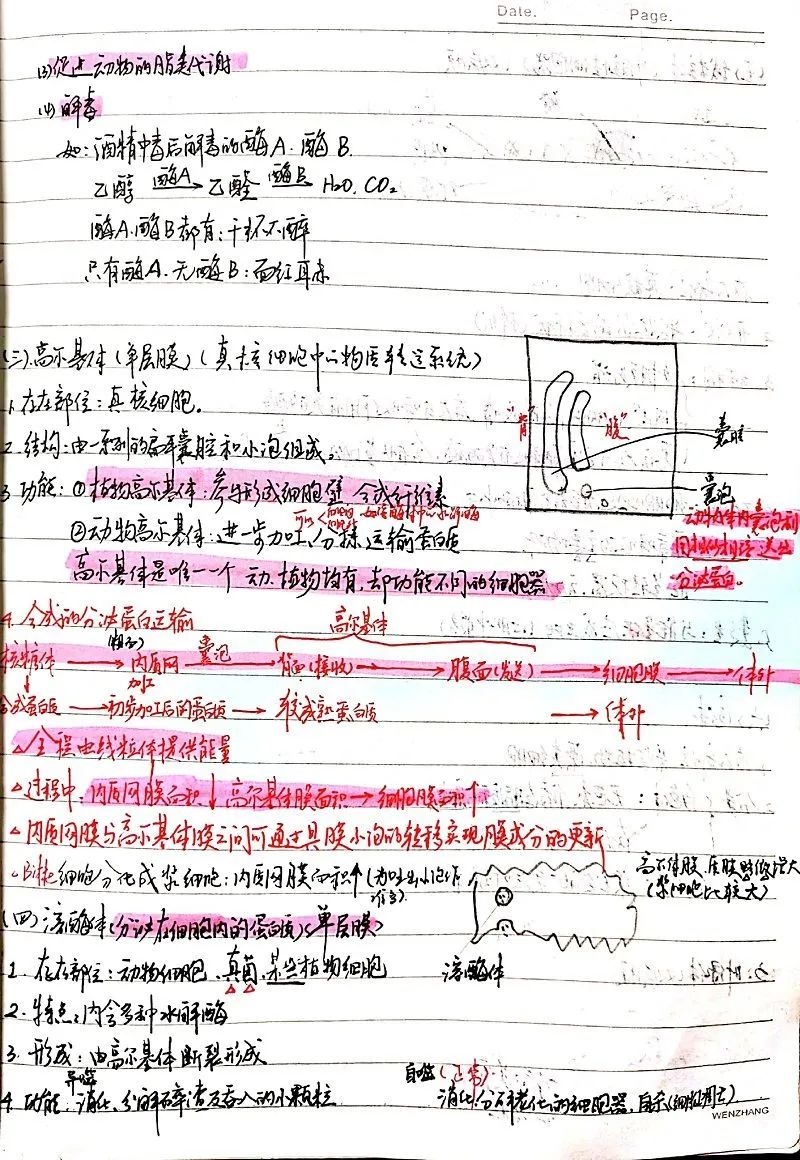 Date. Page.
(3)促进动物的脂类代谢
(4)解毒
如:酒精中毒后解毒的酶A.酶B.
乙醇 酶A→ 乙醛 酶B→ H2O.CO2
酶A.酶B都有:千杯不醉
只有酶A.无酶B:面红耳赤
(三).高尔基体(单层膜)(真核细胞中心物质转运系统)
1.存在部位:真核细胞。
2.结构:由一系列的扁平囊腔和小泡组成。
"背" "腹" 囊腔
囊泡
3.功能:①植物高尔基体:参与形成细胞壁 合成纤维素
②动物高尔基体:进一步加工、分拣、运输蛋白质
高尔基体是唯一一个动.植物均有,却功能不同的细胞器
分泌蛋白。
4.合成的分泌蛋白运输
高尔基体
核糖体→内质网 囊泡→背面(接收)→腹面(发送)→细胞膜→体外
加工
合成蛋白质→初步加工后的蛋白质→较成熟蛋白质→体外
△全程由线粒体提供能量
△过程中,内质网膜面积↓高尔基体膜面积→细胞膜面积↑
△内质网膜与高尔基体膜之间可通过具膜小泡的转移实现膜成分的更新
B淋巴细胞分化成浆细胞:内质网膜面积↑
(浆细胞比较大)
(四)溶酶体(分泌在细胞内的蛋白质)(单层膜)
1.存在部位:动物细胞.真菌.某些植物细胞
溶酶体
2.特点:内含多种水解酶
3.形成:由高尔基体断裂形成
异噬 自噬(正常)
4.功能:消化、分解碎渣及吞入的小颗粒 消化分解老化的细胞器,自杀(细胞凋亡)
WENZHANG